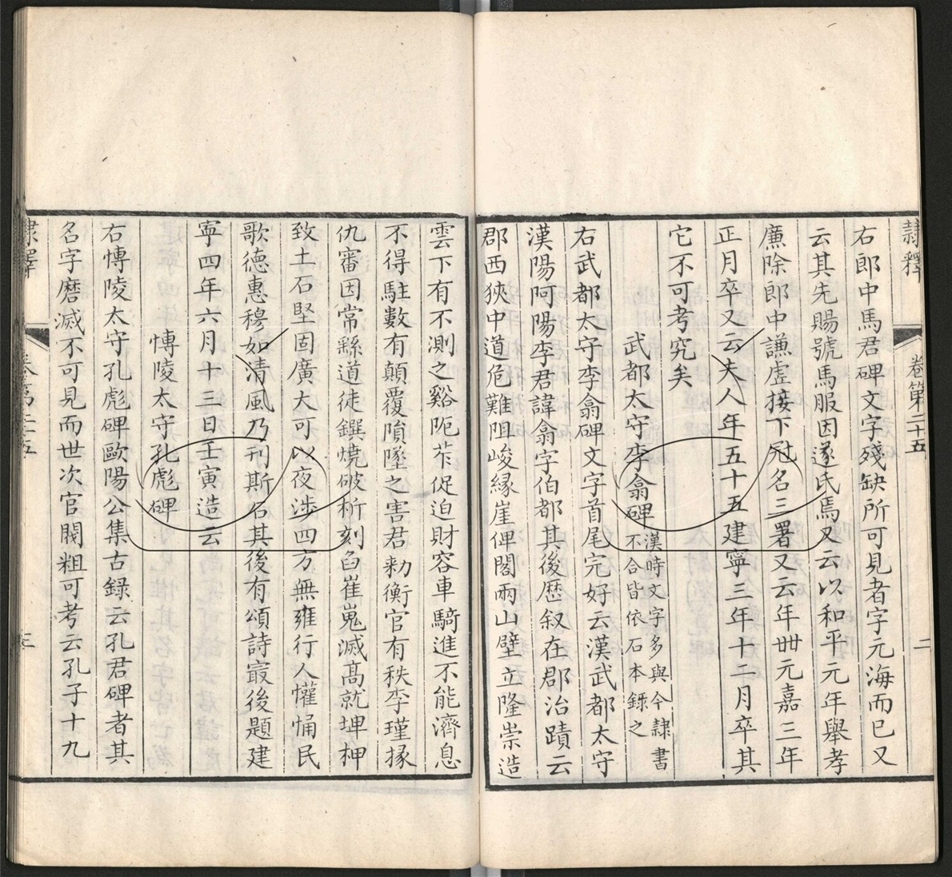 隸釋
卷第二十五
二
右郎中馬君碑文字殘缺所可見者字元海而已又
云其先賜號馬服因遂氏焉又云以和平元年舉孝
廉除郎中謙虛接下冠名三署又云年丗元嘉三年
正月卒又云夫人年五十五建寧三年十二月卒其
它不可考究矣
武都太守李翕碑漢時文字多與今隸書不合皆依石本錄之
右武都太守李翕碑文字首尾完好云漢武都太守
漢陽阿陽李君諱翕字伯都其後歷叙在郡治蹟云
郡西狹中道危難阻峻緣崖俾閣兩山壁立隆崇造
雲下有不測之谿阨芐促迫財容車騎進不能濟息
不得駐數有顛覆隕墜之害君勑衡官有秩李瑾掾
仇審因常繇道徒鐉燒破析刻臽崔嵬減髙就埤柙
致土石堅固廣大可以夜涉四方無雍行人懽悀民
歌德惠穆如清風乃刊斯石其後有頌詩㝡後題建
寧四年六月十三日壬寅造云
博陵太守孔彪碑
右博陵太守孔彪碑歐陽公集古録云孔君碑者其
名字磨滅不可見而世次官閥粗可考云孔子十九
隸釋
卷第二十五
三